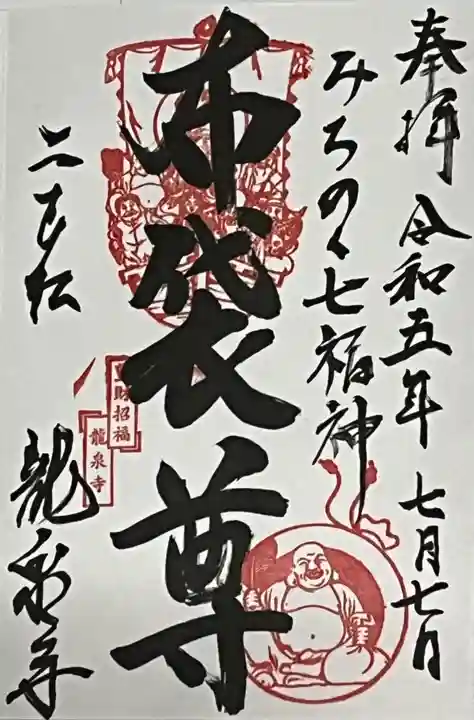 奉拝 令和五年 七月七日
みちのく七福神
布袋尊
二本松
龍泉寺
財招福
龍泉寺